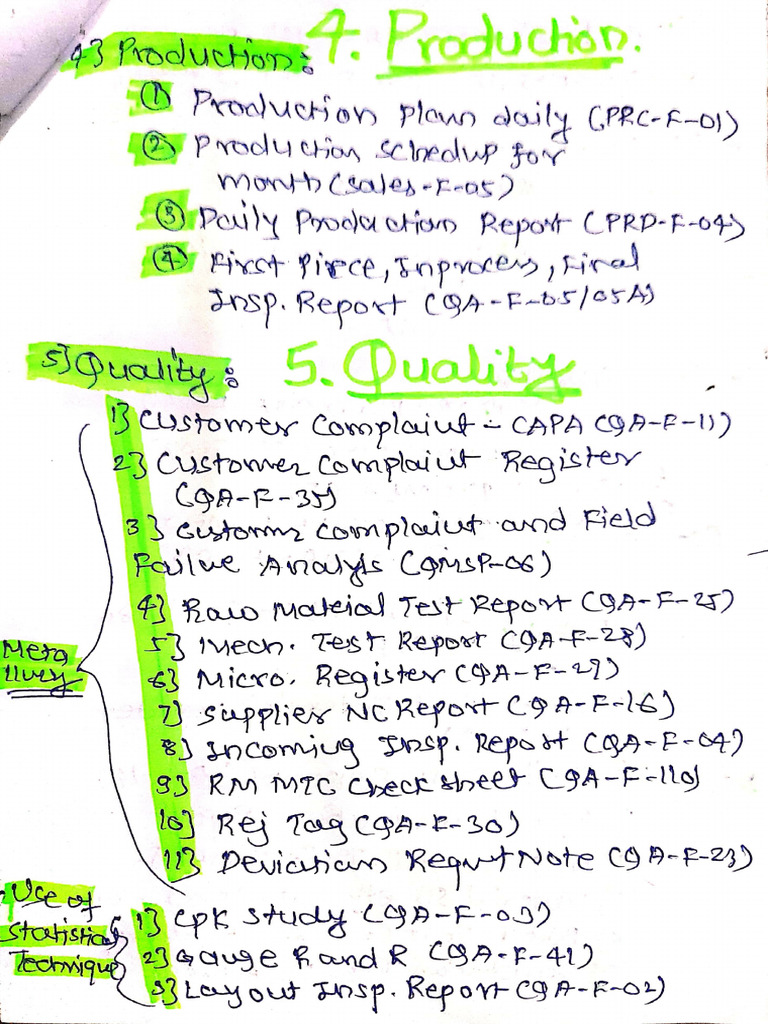 4. Production.
4} Production:
① Production Plan daily (PRC-F-01)
② Production schedup for
month (sales-F-05)
③ Daily Production Report (PRD-F-04)
④ First Pirece, Inprocess, Final
Insp. Report (QA-F-05/05A)
5} Quality: 5. Quality
1} Customer Complaint - CAPA (QA-F-11)
2} Customer Complaint Register
(QA-F-35)
3} Customr Complaint and Field
Failue Analys (QMSP-06)
4} Raw Material Test Report (QA-F-25)
5} Mech. Test Report (QA-F-28)
Meta
6} Micro. Register (QA-F-29)
llury
7} Supplier NC Report (QA-F-16)
8} Incoming Insp. Report (QA-F-04)
9} RM MTC Check sheet (QA-F-110)
10} Rej Tag (QA-F-30)
11} Deviation Requt Note (QA-F-23)
Use of
Statistical
Technique
1} CpK Study (QA-F-03)
2} Gauge R and R (QA-F-41)
3} Layout Insp. Report (QA-F-02)